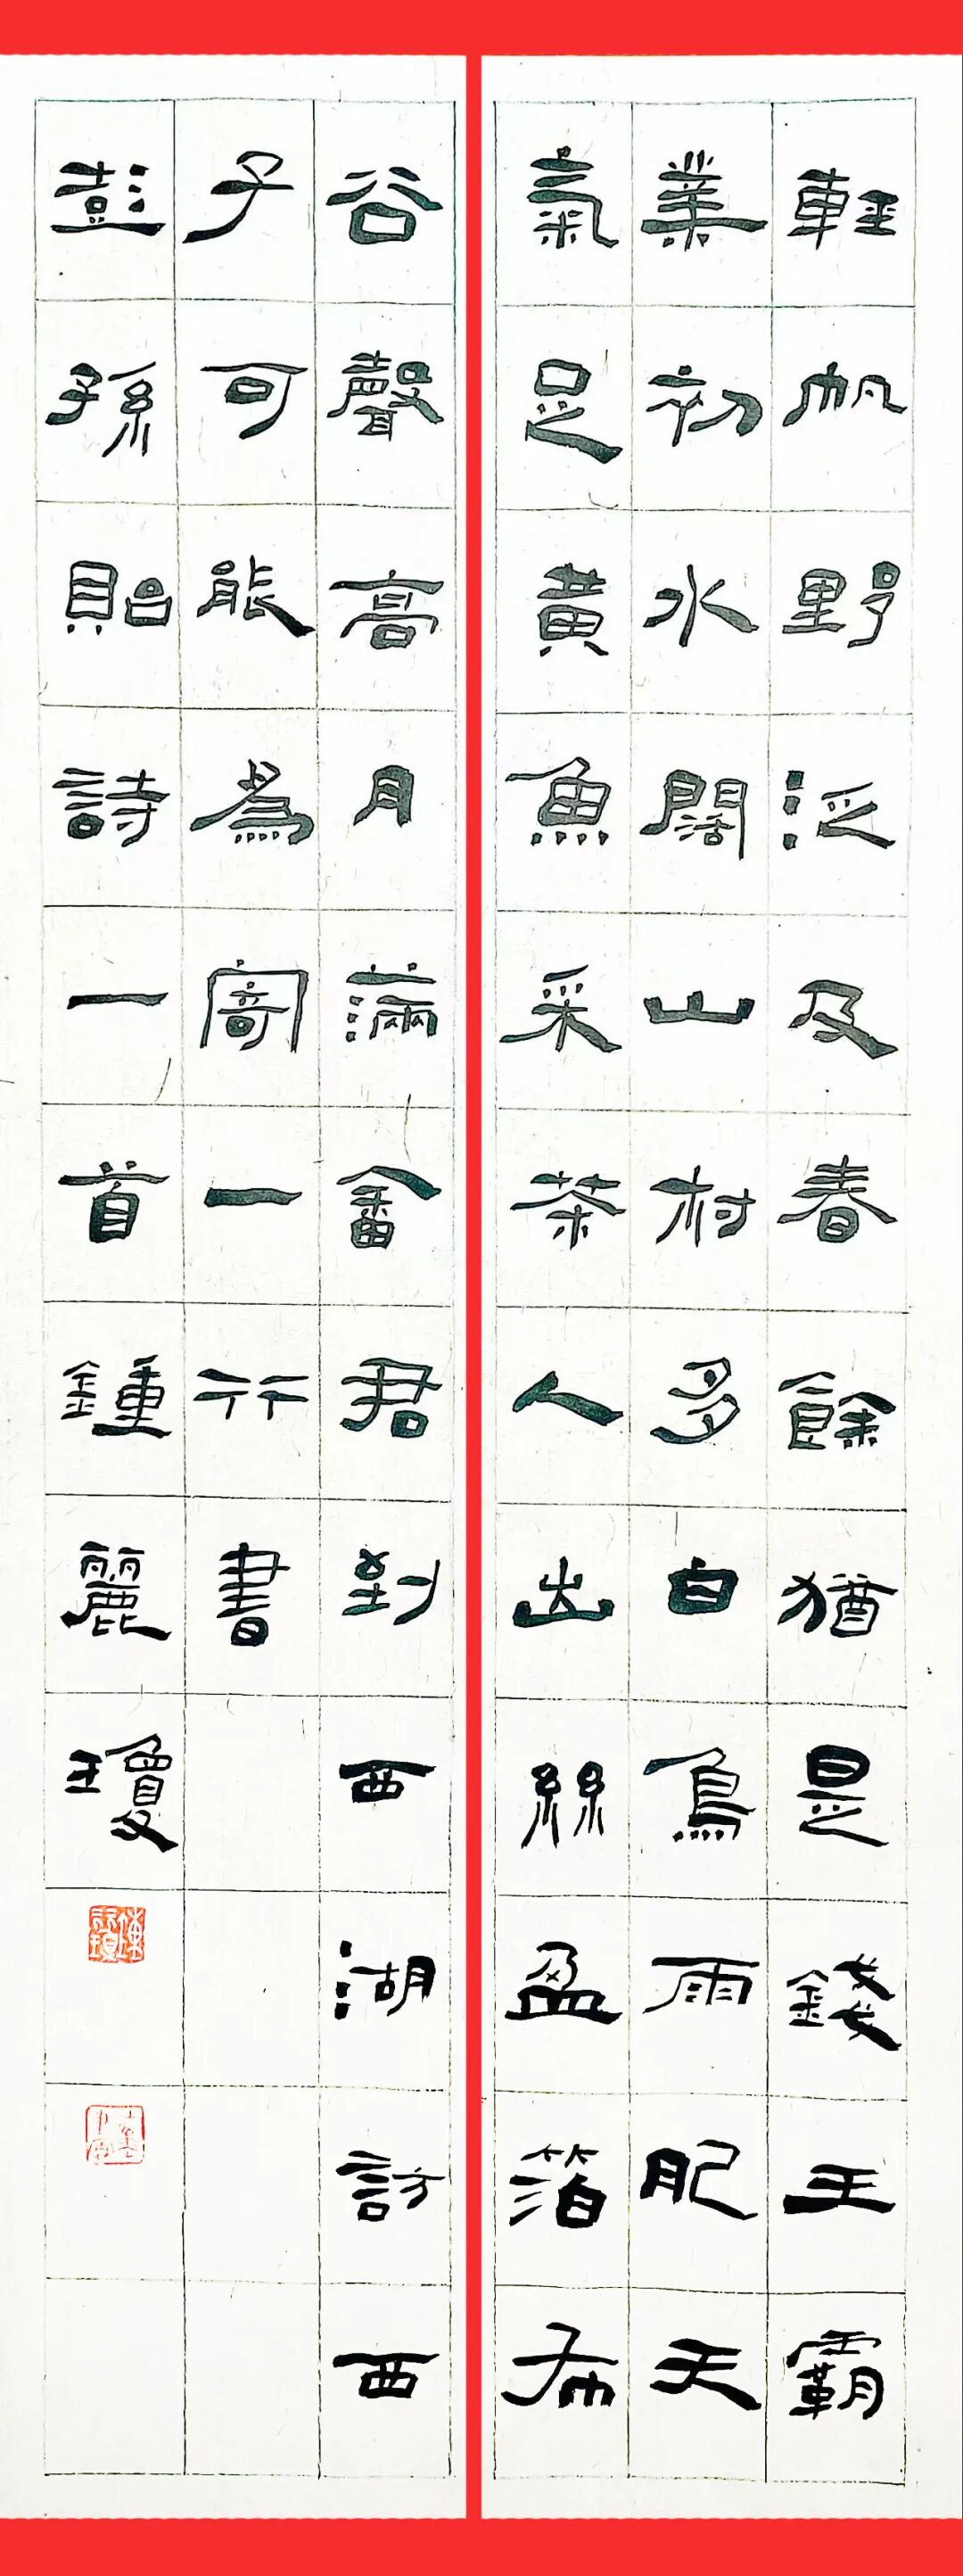 輕帆野泛及春餘猶是錢王霸
業初水闊山村多白鳥雨肥天
氣足黃魚采茶人出絲盈箔布
谷聲高月滿畬君到西湖訪西
子可能為寄一行書
彭孫貽詩一首鍾麗瓊